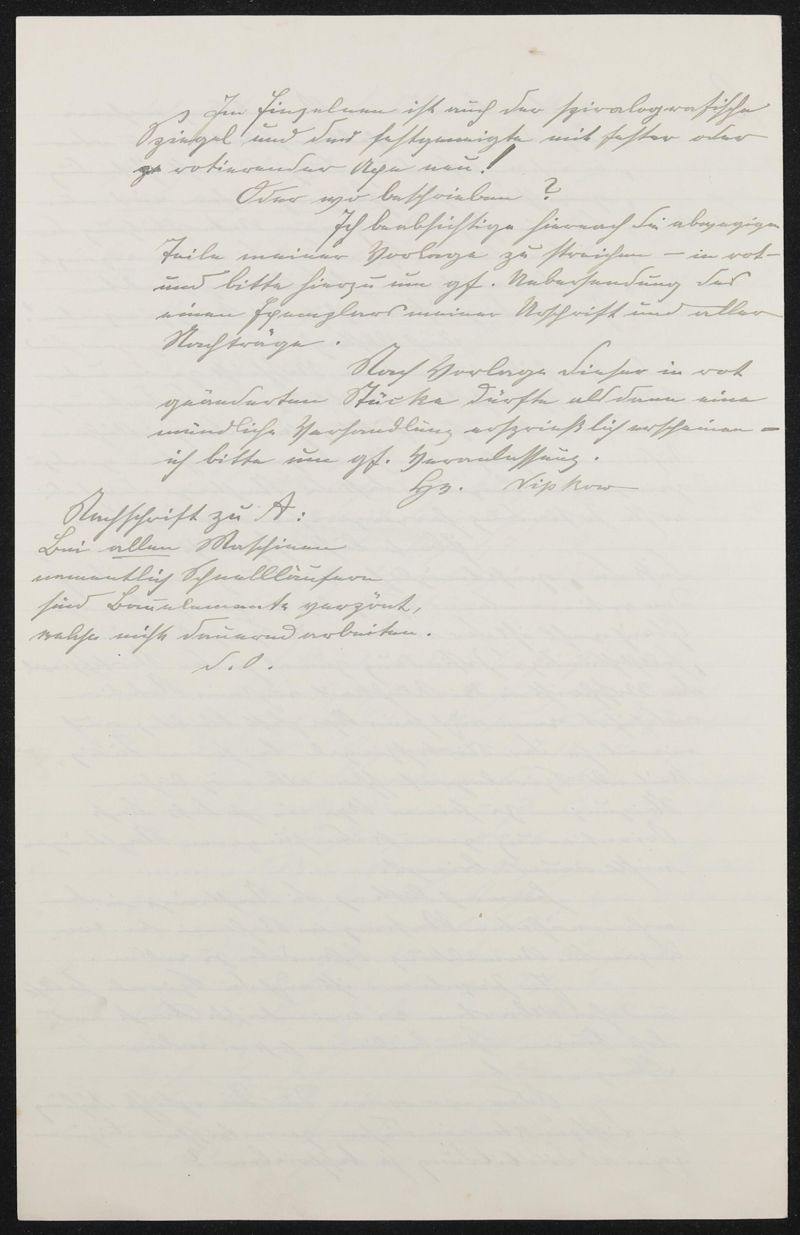 Im Einzelnen ist auch der spiralografische
Spiegel und das festgeneigte mit fester oder
rotierender Axe neu!
Oder wo beschrieben?
Ich beabsichtige hiernach die abwegigen
Teile meiner Vorlage zu streichen – in rot –
und bitte hierzu um gf. Uebersendung des
einen Exemplars meiner Urschrift und aller
Nachträge.
Nach Vorlage dieser in rot
geänderten Stücke dürfte alsdann eine
mündliche Verhandlung ersprießlich erscheinen –
ich bitte um gf. Veranlassung.
Nipkow
Nachschrift zu A:
Bei allen Maschinen
namentlich Schnellläufern
sind Bauelemente verpönt,
welche nicht dauernd arbeiten.
D.O.